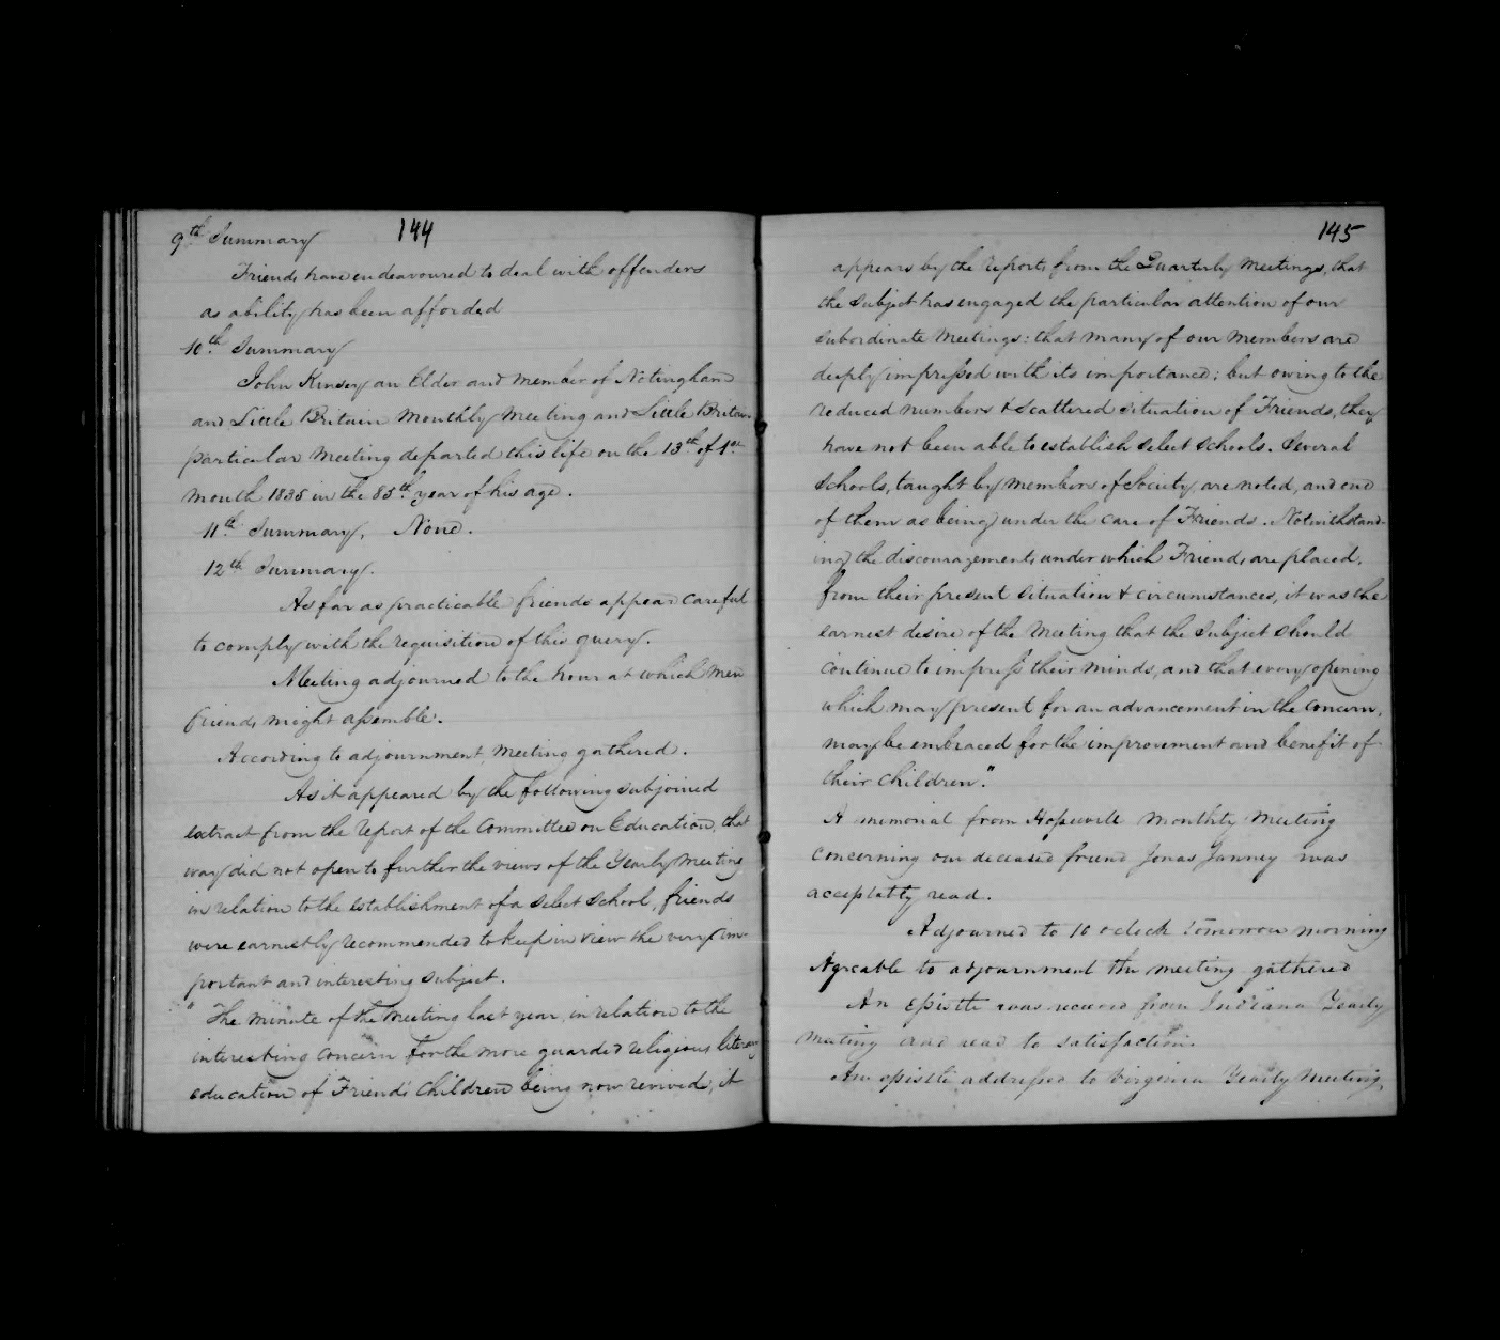 144
9th Summary
Friends have endeavoured to deal with offenders
as ability has been afforded
10th Summary
John Kinsey an Elder and member of Notingham
and Little Britain Monthly Meeting and Little Britain
particular Meeting departed this life on the 13th of 1st
month 1835 in the 85th year of his age.
11th Summary, None.
12th Summary.
As far as practicable friends appear careful
to comply with the requisition of this query.
Meeting adjourned to the hour at which men
friends might assemble.
According to adjournment Meeting gathered.
As it appeared by the following subjoined
extract from the report of the Committee on Education, that
way did not open to further the views of the Yearly Meeting
in relation to the establishment of a select school, friends
were earnestly recommended to keep in view the very im-
portant and interesting subject.
"The minute of the Meeting last year in relation to the
interesting concern for the more guarded religious literary
education of Friends Children being now revived, it
145
appears by the reports from the Quarterly Meetings, that
the subject has engaged the particular attention of our
subordinate Meetings: that many of our members are
deeply impressed with its importance; but owing to the
reduced numbers & scattered situation of Friends, they
have not been able to establish select schools. Several
schools, taught by members of Society are noted, and one
of them as being under the care of Friends. Notwithstand-
ing the discouragements under which Friends are placed,
from their present situation & circumstances, it was the
earnest desire of the Meeting that the subject should
continue to impress their minds, and that every opening
which may present for an advancement in the concern,
may be embraced for the improvement and benefit of
their children."
A memorial from Hopewell Monthly Meeting
concerning our deceased friend Jonas Janney was
acceptatly read.
Adjourned to 10 oclock tomorrow morning
Agreable to adjournment the meeting gathered
An Epistle was received from Indiana Yearly
meeting and read to satisfaction.
An epistle addressed to Virginia Yearly Meeting,